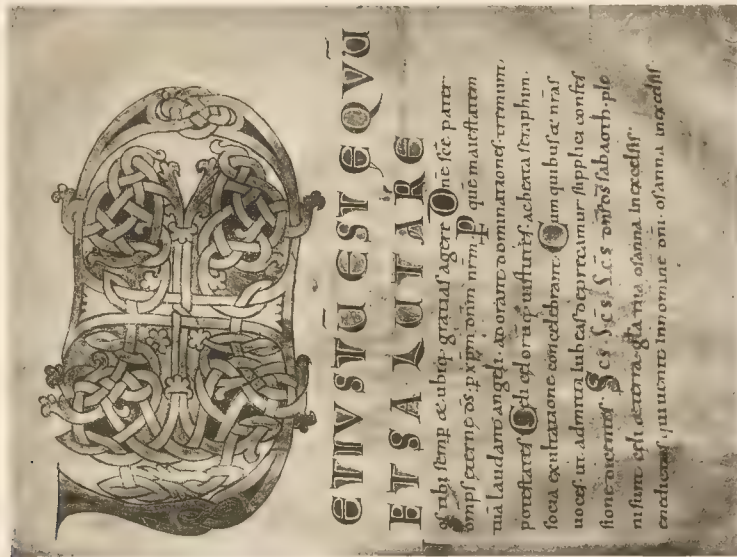 ETIVSTŪ EST EQVŪ
ET SALUTARE
tibi semp & ubiq; gratias agere Dñe scē pater
omps eterne ds̄. p xp̄m dnm̄ nrm̄. P quē maiestatem
tuā laudant angeli. adorant dominationes. tremunt.
potestates Celi celorūq; uirtutes. ac beata seraphim.
socia exultatione concelebrant. Cum quibus & nrās
uoces. ut admitti iubeas deprecamur. supplici confes
sione dicentes. Scs̄. Scs̄. Scs̄ dns̄ ds̄ sabaoth. ple
ni sunt celi & terra. gla tua osanna in excelsis.
enedictus qui uenit in nomine dnī. osanna in excelsis